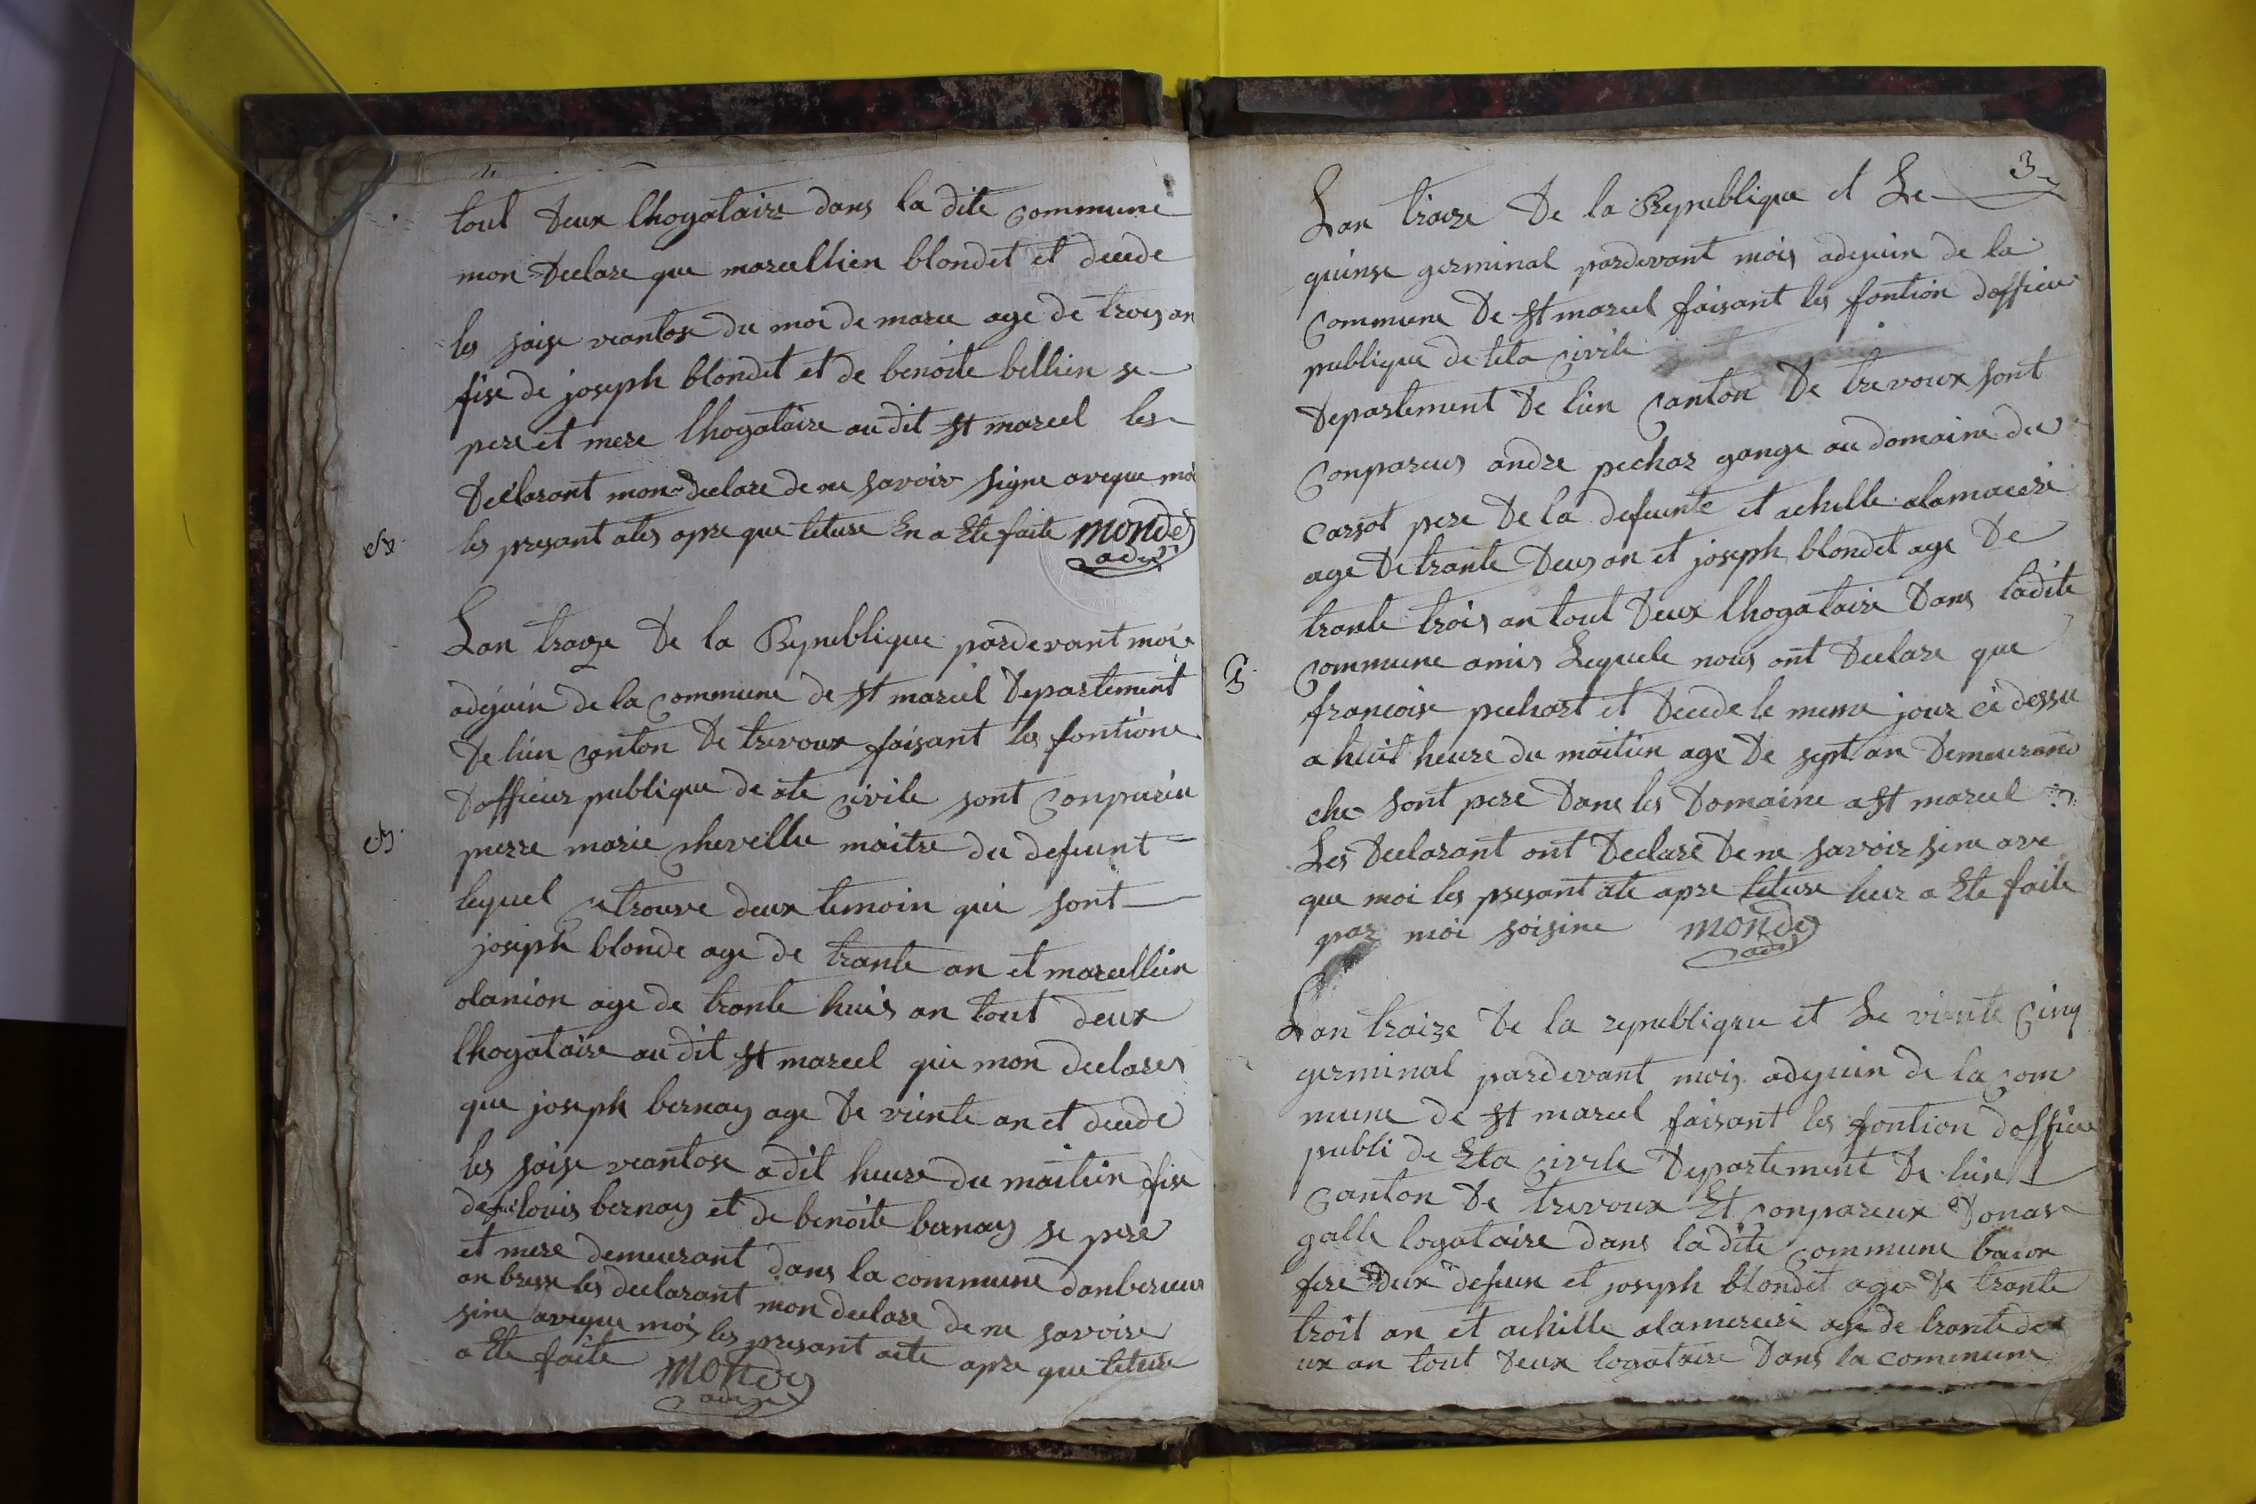 tout deux lhogataire dans la dite commune
mon declare que marcellien blondet et decede
les saise vantose du moi de marce age de troys an
fise de joseph blondet et de benoite bellien se
pere et mere lhogataire audit st marcel les
declarant mon declare de ne savoir signe aveque moi
les presant ates apre que leture en a ete faite monde
adj
Lan traize de la Republique pardevant moi
adejuin de la commune de st marcel departement
de lien canton de trevoux faisant les fontione
dofficier publique de ate civile sont conpureu
pierre marie chevellu maitre du defeunt
lequel a trouve deux temoin qui sont
joseph blonde age de trante an et marcellien
olanion age de trante huis an tout deux
lhogataire au dit st marcel qui mon declares
que joseph bernay age de viente an et decede
les saise vantose a dit heure du maitien fise
de louis bernay et de benoite bernay se pere
et mere demeurant dans la commune danberieux
an bresse les declarant mon declare de ne savoire
sine aveque mois les presant acte apre que leture
a ete faite monde
adj
3
Lan traize de la Republique et Le
quinse germinal pardevant mois adejuin de la
commune de st marcel faisant les fontion dofficier
publique de leta civile
departement de lien canton de trevoux sont
conpareus andre pechar gange au domaine du
carsot pere de la defeunte et achille alamercери
age de trante deus an et joseph blondet age de
trante trois an tout deux lhogataire dans ladite
commune amis Lequele nous ont declare que
francoise pechart et decede le meme jour ci dessu
a huit heure du maitien age de sept an demeurand
che sont pere dans les domaine a st marcel
Les declarant ont declare de ne savoir sine ave
que moi les presant ate apre leture leur a ete faite
par moi soisine monde
adj
Lan traize de la republique et Le viente cinq
germinal pardevant mois adejuin de la com
mune de st marcel faisant les fontion dofficier
publi de Eta civile departement de lien
canton de trevoux Et conpareux donas
galle logataire dans la dite commune beaux
fere deux defeux et joseph blondet age de trante
troit an et achille alamercere age de trante de
ux an tout deux logataire dans la commune